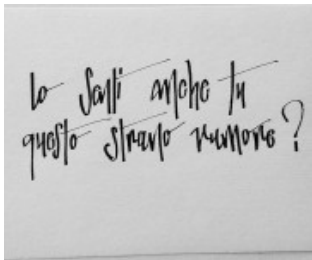 lo senti anche tu
questo strano rumore?